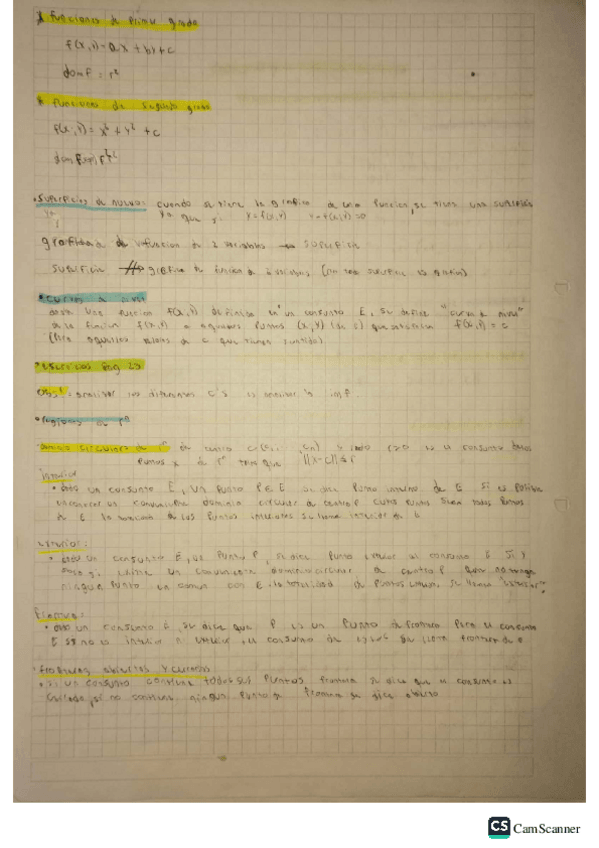 * Funciones de primer grado
f(x,y) = ax + by + c
domF = r²
* Funciones de segundo grado
f(x,y) = x² + y² + c
dom
• Superficies de cuando se tiene la grafica de una función, se tiene una superficie
que
grafica de función de 2 variables → superficie
superficie grafica de función de 2 variables (no toda superficie es grafica)
• Curvas de nivel
dada una función f(x,y) definida en un conjunto E, se define "curva de nivel"
de la función f(x,y) a aquellos puntos (x,y) (de E) que satisfacen f(x,y) = c
(Para aquellos valores de c que tienen sentido)
• Ejercicios Pag 29
Obs: analizar los diferentes C's es analizar la imF.
• regiones de rⁿ
dominio circular de rⁿ de centro radio r>0 es el conjunto de los
puntos x de rⁿ tales que ||x-c|| ≤ r
Interior
• dado un conjunto E, un punto P∈E se dice punto interior de E si es posible
encontrar un conveniente dominio circular de centro P cuyos puntos sean todos puntos
de E. la totalidad de sus puntos interiores se llama interior de E
Exterior:
• dado un conjunto E, un punto P, se dice punto exterior al conjunto E si y
solo si existe un conveniente dominio circular de centro P que no tenga
ningun punto en comun con E. la totalidad de puntos se llama "exterior"
Frontera:
• dado un conjunto E, se dice que P es un punto de frontera para el conjunto
E si no es interior ni exterior, el conjunto de se llama frontera de E
• fronteras abiertos y cerrados
• si un conjunto contiene todos sus puntos frontera se dice que el conjunto es
cerrado, si no contiene ningun punto de frontera se dice abierto
CS CamScanner